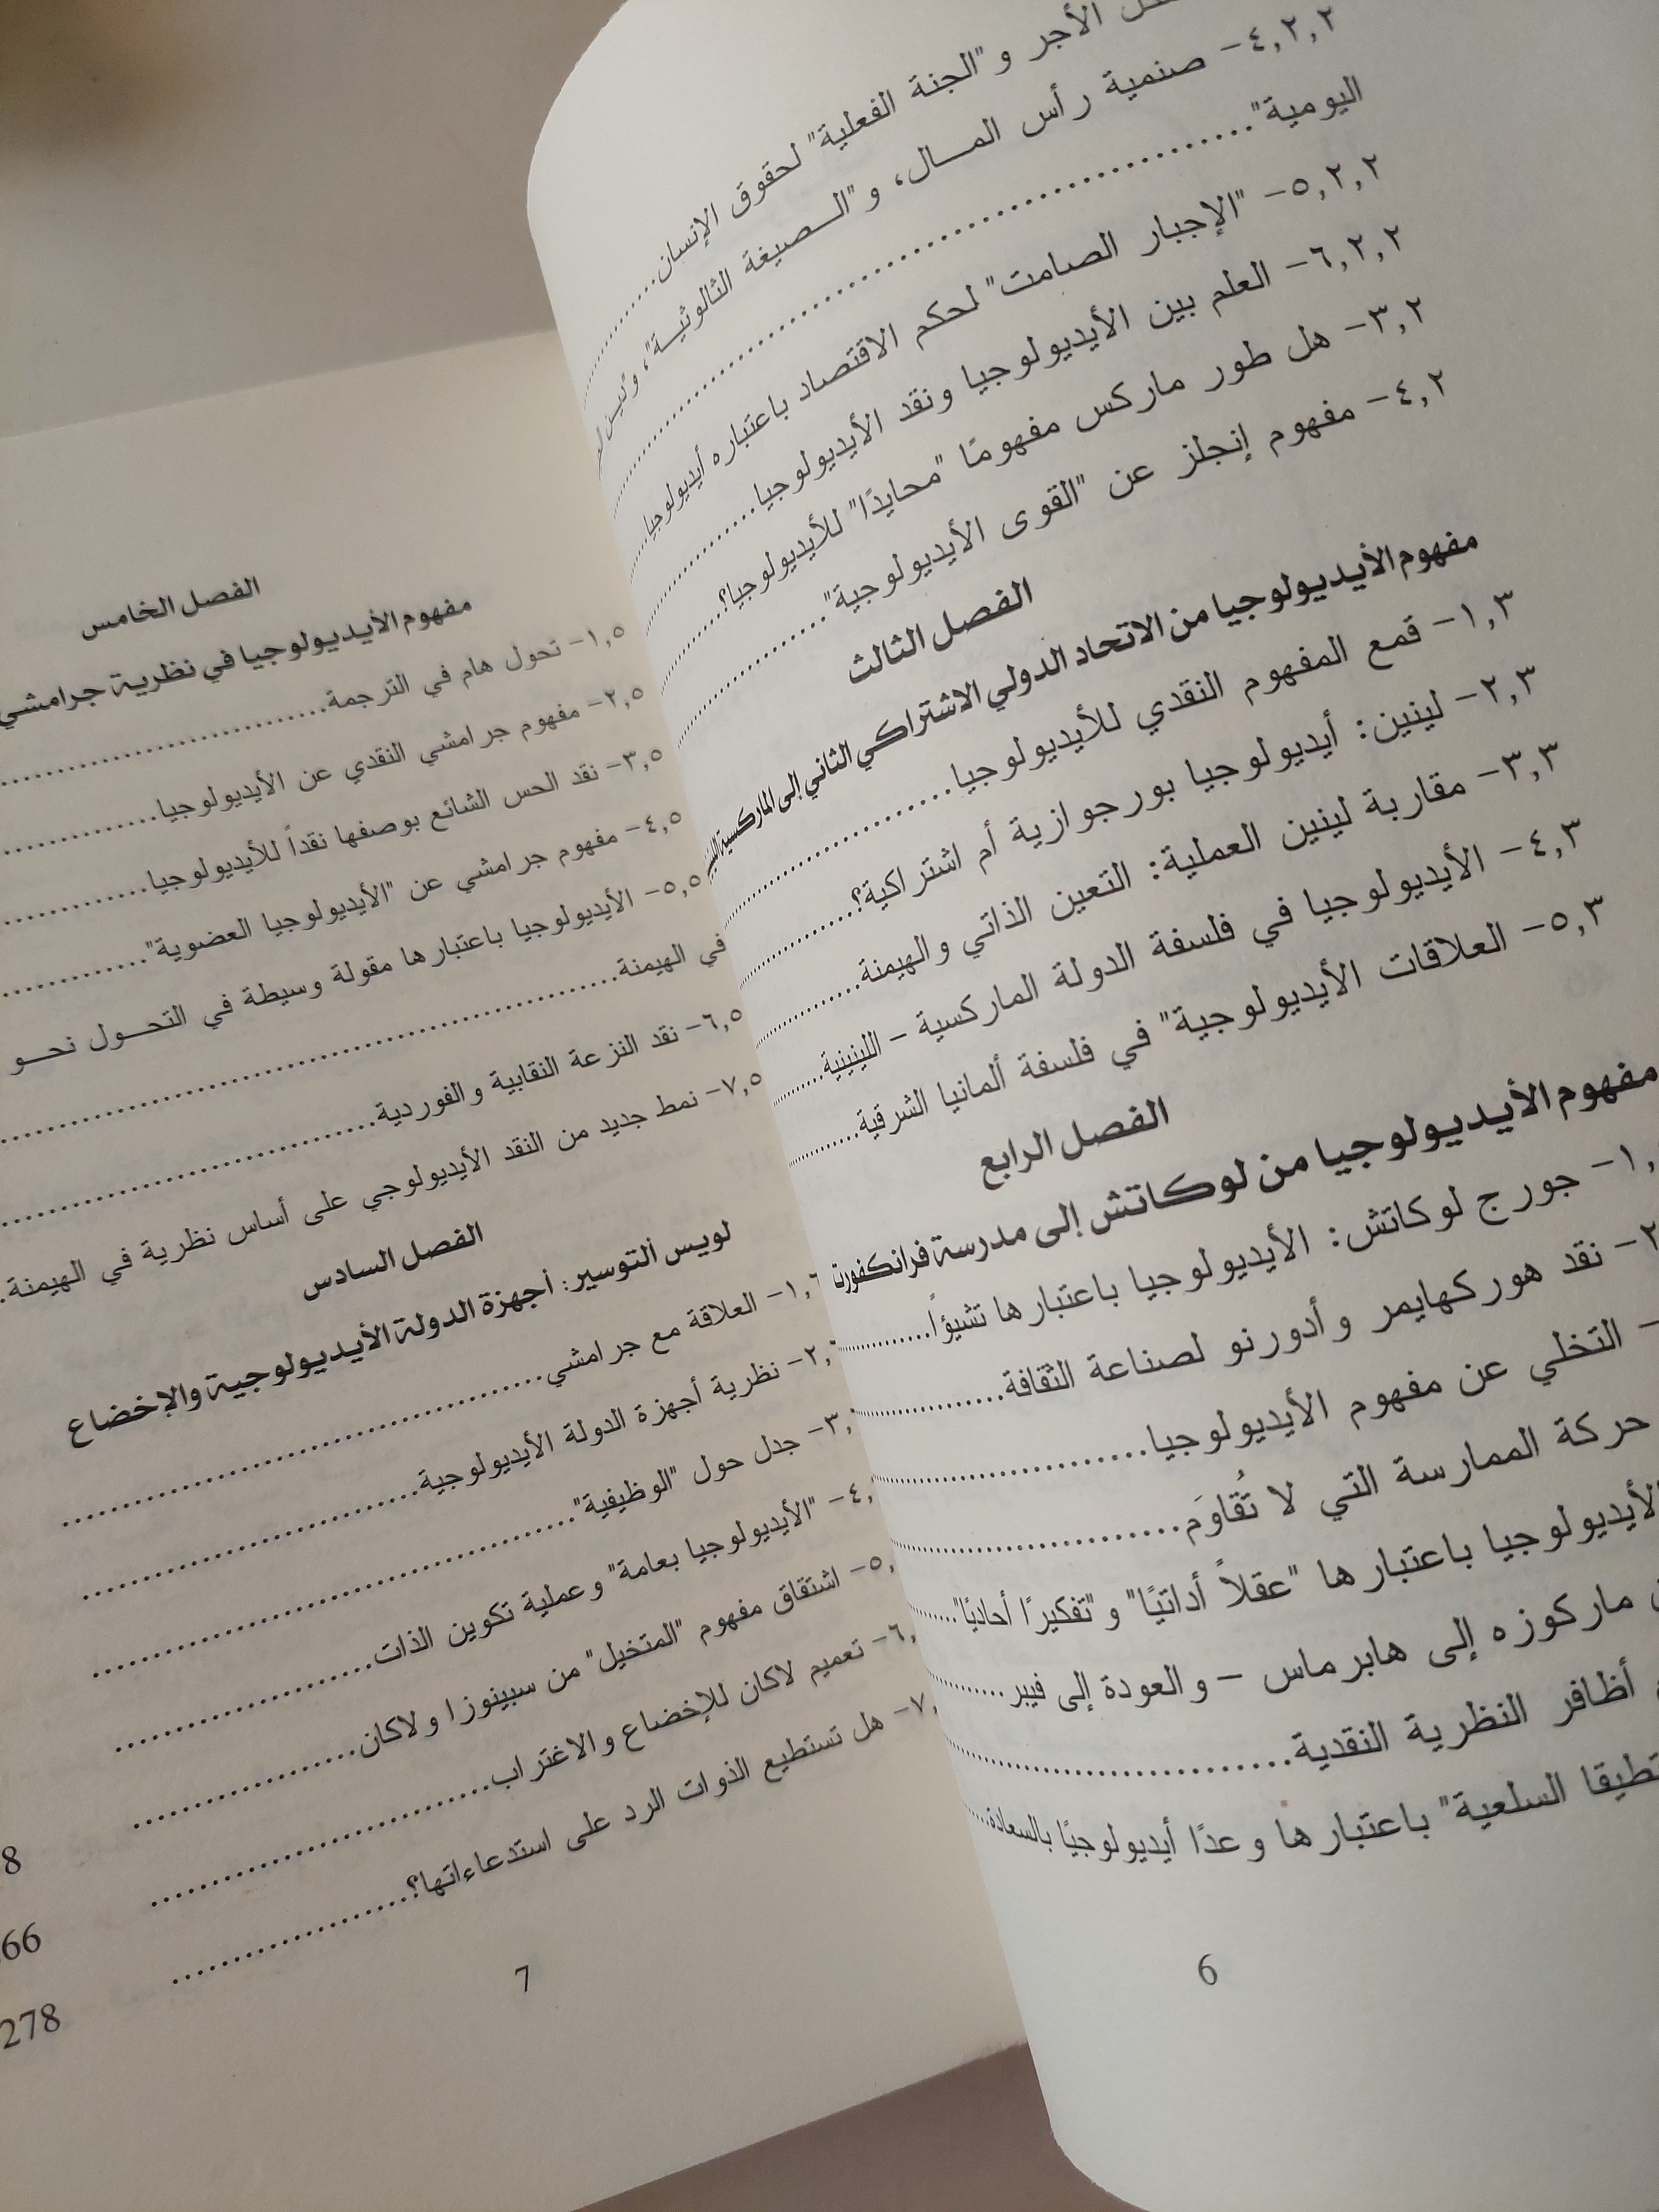 الأجر و "الجنة الفعلية" لحقوق الإنسان
٤,٢,٢- صنمية رأس المال، و "الصيغة الثالوثية"، و
اليومية"
٥,٢,٢- "الإجبار الصامت" لحكم الاقتصاد باعتباره أيديولوجيا
٦,٢,٢- العلم بين الأيديولوجيا ونقد الأيديولوجيا
٣,٢- هل طور ماركس مفهومًا "محايدًا" للأيديولوجيا؟
٤,٢- مفهوم إنجلز عن "القوى الأيديولوجية"
الفصل الثالث
مفهوم الأيديولوجيا من الاتحاد الدولي الاشتراكي الثاني إلى الماركسية
١,٣- قمع المفهوم النقدي للأيديولوجيا
٢,٣- لينين: أيديولوجيا بورجوازية أم اشتراكية؟
٣,٣- مقاربة لينين العملية: التعين الذاتي والهيمنة
٤,٣- الأيديولوجيا في فلسفة الدولة الماركسية – اللينينية
٥,٣- العلاقات الأيديولوجية" في فلسفة ألمانيا الشرقية
الفصل الرابع
مفهوم الأيديولوجيا من لوكاتش إلى مدرسة فرانكفورت
١,- جورج لوكاتش: الأيديولوجيا باعتبارها تشيؤاً
٢- نقد هوركهايمر وأدورنو لصناعة الثقافة
- التخلي عن مفهوم الأيديولوجيا
حركة الممارسة التي لا تُقاوَم
الأيديولوجيا باعتبارها "عقلاً أداتيًا" و "تفكيرًا أحاديًا"
ماركوزه إلى هابرماس – والعودة إلى فيبر
أظافر النظرية النقدية
السلعية" باعتبارها وعدًا أيديولوجيًا بالسعادة
6
الفصل الخامس
مفهوم الأيديولوجيا في نظرية جرامشي
١,٥- تحول هام في الترجمة
٢,٥- مفهوم جرامشي النقدي عن الأيديولوجيا
٣,٥- نقد الحس الشائع بوصفها نقداً للأيديولوجيا
٤,٥- مفهوم جرامشي عن "الأيديولوجيا العضوية"
٥,٥- الأيديولوجيا باعتبارها مقولة وسيطة في التحول نحو
في الهيمنة
٦,٥- نقد النزعة النقابية والفوردية
٧,٥- نمط جديد من النقد الأيديولوجي على أساس نظرية في الهيمنة
الفصل السادس
لويس ألتوسير: أجهزة الدولة الأيديولوجية والإخضاع
١,٦- العلاقة مع جرامشي
٢,- نظرية أجهزة الدولة الأيديولوجية
٣,- جدل حول "الوظيفية"
٤,- "الأيديولوجيا بعامة" وعملية تكوين الذات
٥,- اشتقاق مفهوم "المتخيل" من سبينوزا ولاكان
٦,- تعميم لاكان للإخضاع والاغتراب
٧,- هل تستطيع الذوات الرد على استدعاءاتها؟
8
66
278
7